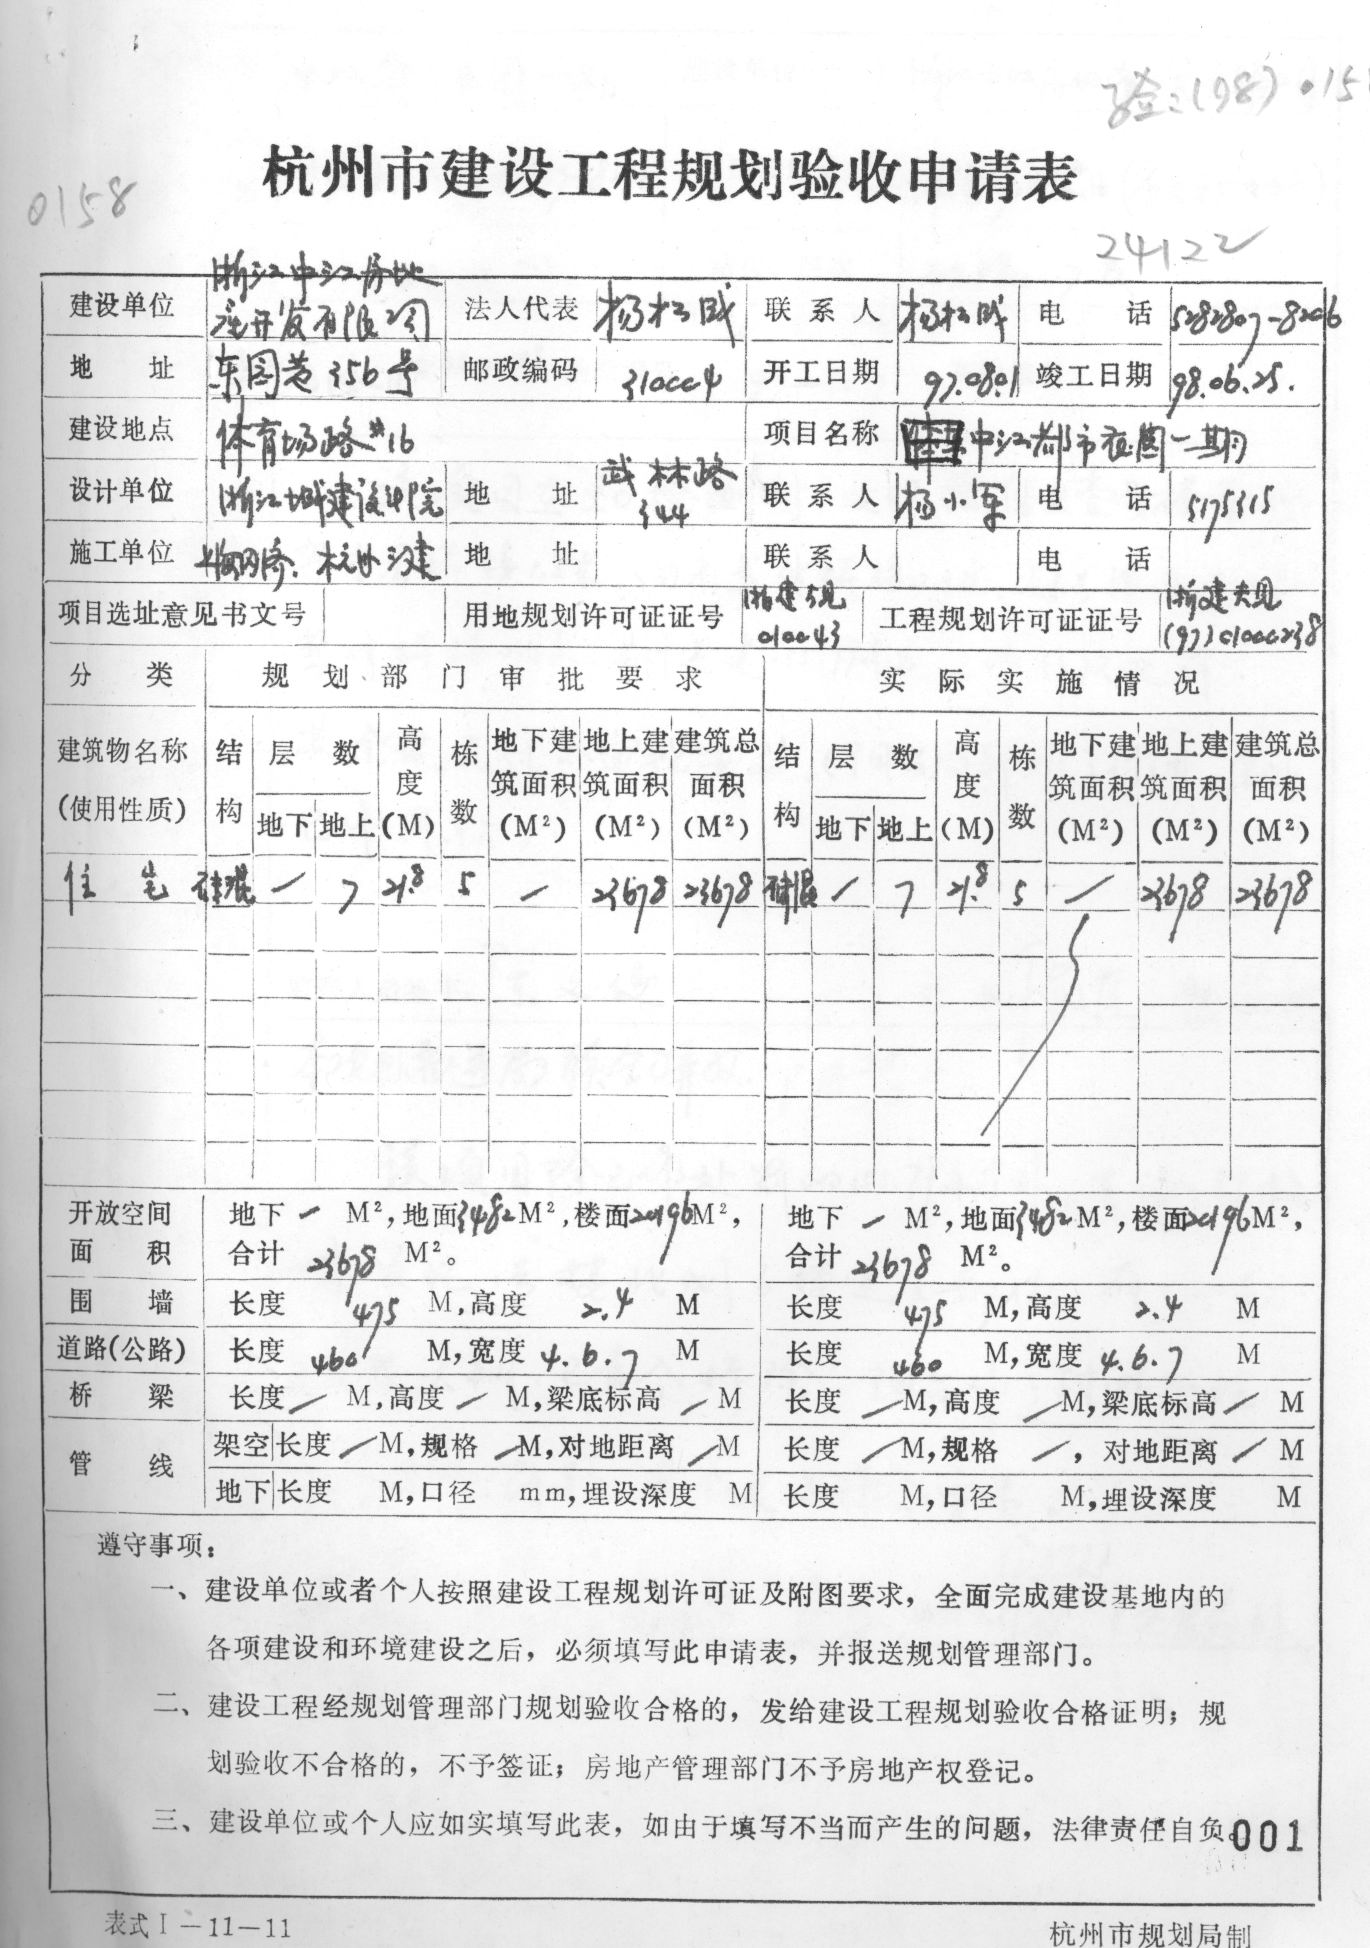 验:(98).015
杭州市建设工程规划验收申请表
0158
24122
建设单位 浙江中江房地产开发有限公司 法人代表 杨松成 联系人 杨松成 电话 5282807-8206
地址 东园巷356号 邮政编码 310004 开工日期 97.08.01 竣工日期 98.06.25.
建设地点 体育场路#16 项目名称 中江都市花园一期
设计单位 浙江城建设计院 地址 武林路344 联系人 杨小军 电话 5175315
施工单位 杭州二建 地址 联系人 电话
项目选址意见书文号 用地规划许可证证号 010043 工程规划许可证证号 (97)01000238
分类 规划部门审批要求 实际实施情况
建筑物名称(使用性质) 结构 层数 地下 地上 高度(M) 栋数 地下建筑面积(M²) 地上建筑面积(M²) 建筑总面积(M²) 结构 层数 地下 地上 高度(M) 栋数 地下建筑面积(M²) 地上建筑面积(M²) 建筑总面积(M²)
住宅 砖混 / 7 21.8 5 / 23678 23678 砖混 / 7 21.8 5 / 23678 23678
开放空间面积 地下 / M²,地面3482M²,楼面20196M², 地下 / M²,地面3482M²,楼面20196M²,
合计 23678 M²。 合计 23678 M²。
围墙 长度 475 M,高度 2.4 M 长度 475 M,高度 2.4 M
道路(公路) 长度 460 M,宽度 4.6.7 M 长度 460 M,宽度 4.6.7 M
桥梁 长度 / M,高度 / M,梁底标高 / M 长度 / M,高度 / M,梁底标高 / M
管线 架空 长度 / M,规格 / M,对地距离 / M 长度 / M,规格 / ,对地距离 / M
地下 长度 M,口径 mm,埋设深度 M 长度 M,口径 M,埋设深度 M
遵守事项:
一、建设单位或者个人按照建设工程规划许可证及附图要求,全面完成建设基地内的
各项建设和环境建设之后,必须填写此申请表,并报送规划管理部门。
二、建设工程经规划管理部门规划验收合格的,发给建设工程规划验收合格证明;规
划验收不合格的,不予签证;房地产管理部门不予房地产权登记。
三、建设单位或个人应如实填写此表,如由于填写不当而产生的问题,法律责任自负。
001
表式Ⅰ—11—11
杭州市规划局制